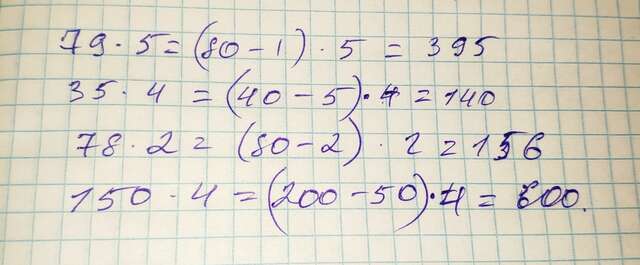 79 · 5 = (80 - 1) · 5 = 395
35 · 4 = (40 - 5) · 4 = 140
78 · 2 = (80 - 2) · 2 = 156
150 · 4 = (200 - 50) · 4 = 600.